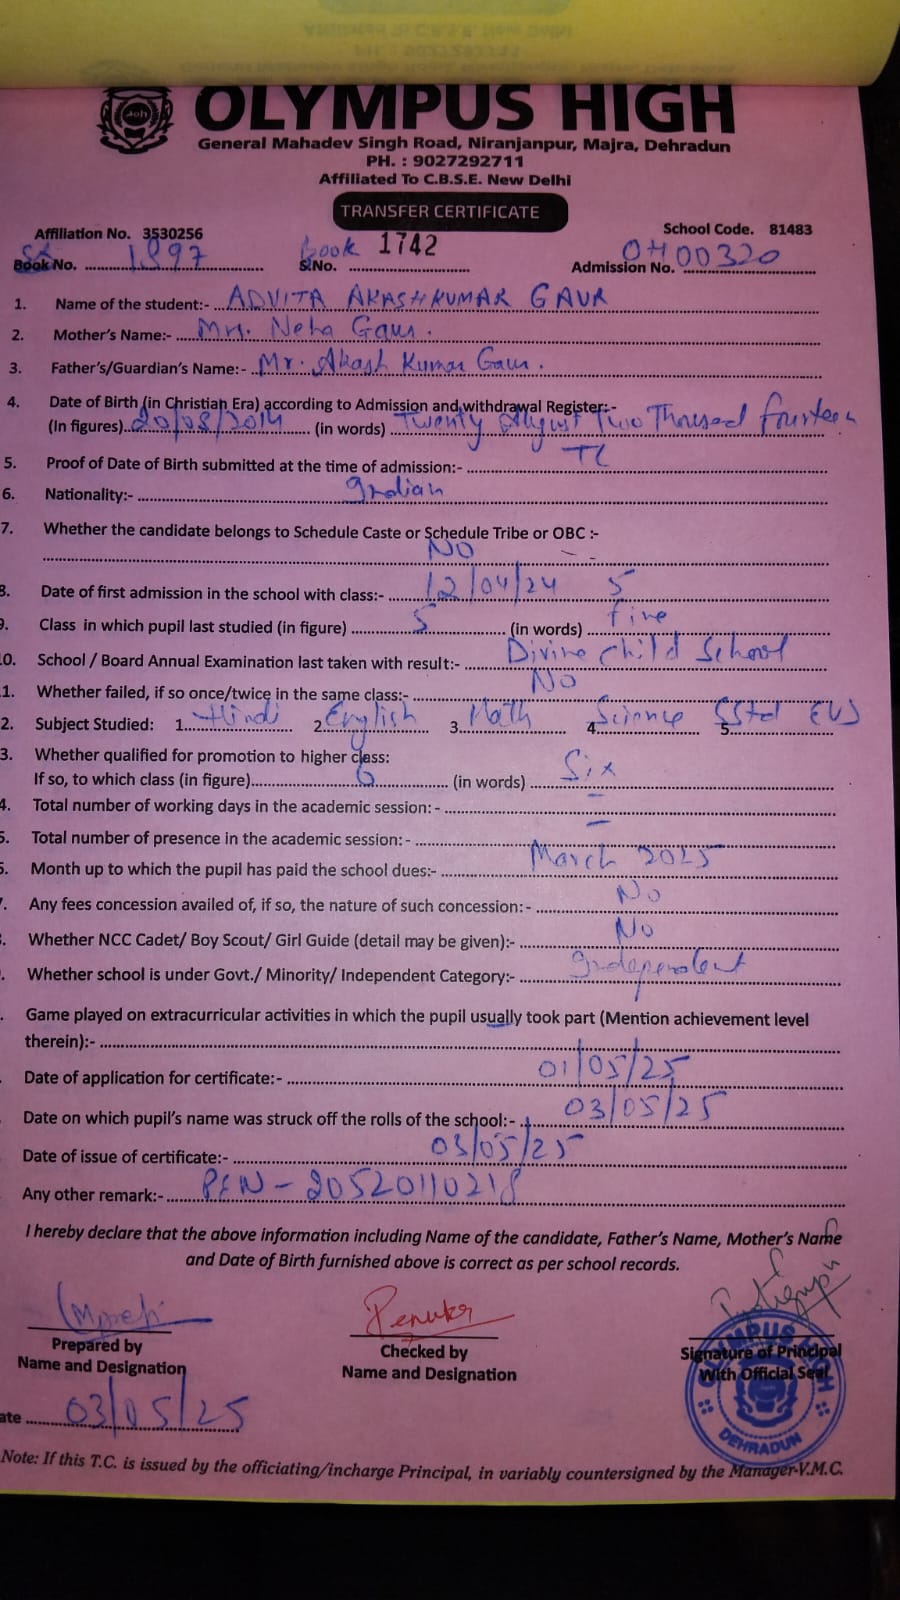 OLYMPUS HIGH
General Mahadev Singh Road, Niranjanpur, Majra, Dehradun
PH. : 9027292711
Affiliated To C.B.S.E. New Delhi
TRANSFER CERTIFICATE
Affiliation No. 3530256 School Code. 81483
Book No. 1897 Book S.No. 1742 Admission No. 0400320
1. Name of the student:- ADVITA AKASHKUMAR GAUR
2. Mother's Name:- Mrs. Neha Gaur.
3. Father's/Guardian's Name:- Mr. Akash Kumar Gaur.
4. Date of Birth (in Christian Era) according to Admission and withdrawal Register:-
(In figures) 20/08/2014 (in words) Twenty August Two Thousad fourteen
5. Proof of Date of Birth submitted at the time of admission:- TC
6. Nationality:- Indian
7. Whether the candidate belongs to Schedule Caste or Schedule Tribe or OBC :-
NO
8. Date of first admission in the school with class:- 12/04/24 5
9. Class in which pupil last studied (in figure) 5 (in words) five
10. School / Board Annual Examination last taken with result:- Divine Child School
1. Whether failed, if so once/twice in the same class:- No
2. Subject Studied: 1. Hindi 2 English 3. Math 4. Science 5. SStd EVS
3. Whether qualified for promotion to higher class:
If so, to which class (in figure) 6 (in words) Six
4. Total number of working days in the academic session: - –
5. Total number of presence in the academic session: - –
Month up to which the pupil has paid the school dues:- March 2025
Any fees concession availed of, if so, the nature of such concession:- No
Whether NCC Cadet/ Boy Scout/ Girl Guide (detail may be given):- No
Whether school is under Govt./ Minority/ Independent Category:- Independent
Game played on extracurricular activities in which the pupil usually took part (Mention achievement level
therein):-
Date of application for certificate:- 01/05/25
Date on which pupil's name was struck off the rolls of the school:- 03/05/25
Date of issue of certificate:- 03/05/25
Any other remark:- PEN - 20520110218
I hereby declare that the above information including Name of the candidate, Father's Name, Mother's Name
and Date of Birth furnished above is correct as per school records.
Renuka
Prepared by Checked by Signature of Principal
Name and Designation Name and Designation With Official Seal
OLYMPUS HIGH DEHRADUN
ate 03/05/25
Note: If this T.C. is issued by the officiating/incharge Principal, in variably countersigned by the Manager-V.M.C.